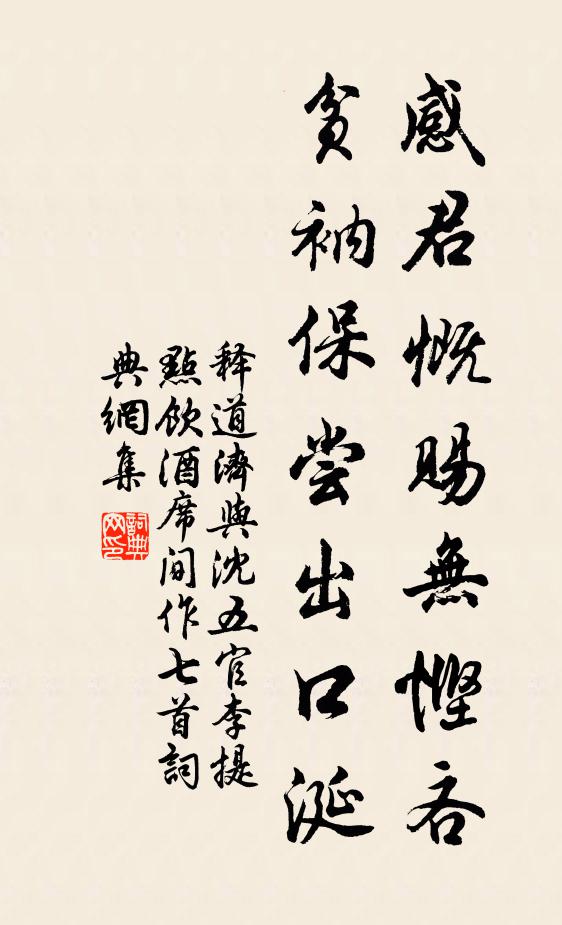 感君慨賜無慳吝
貧衲保尝出口涎
释道濟與沈五官李提
點飲酒席间作七首詞
典網集
詞典网印